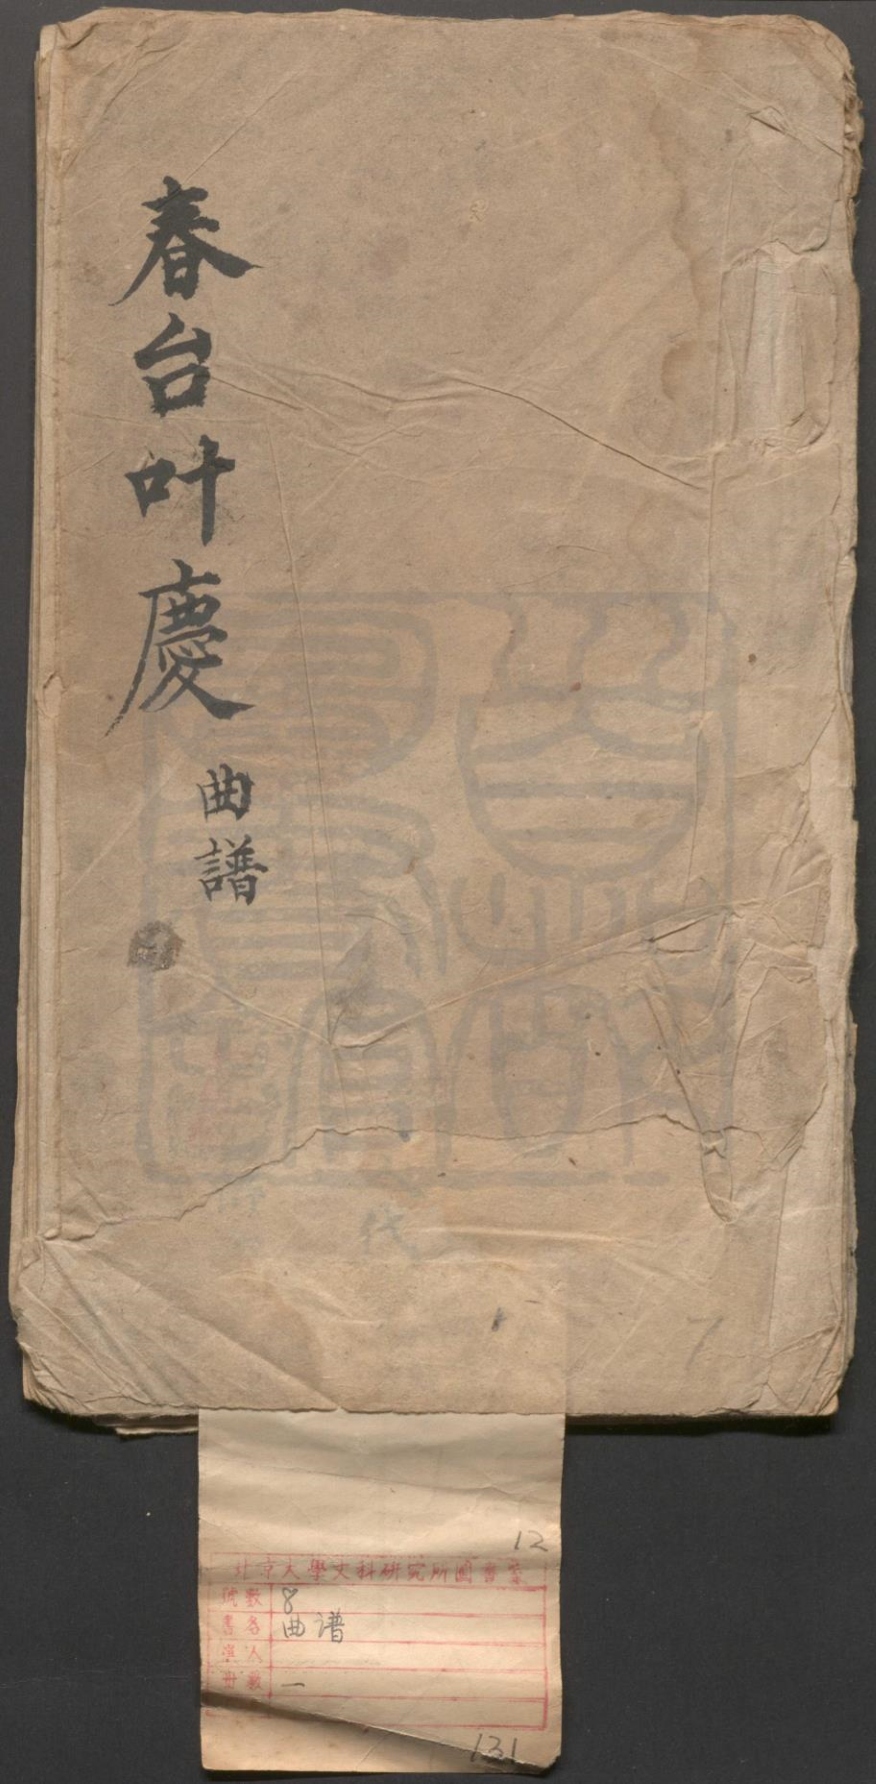 春台叶慶
曲譜
代
7
12
北京大學文科研究所圖書
號數 8
書名 曲谱
撰人
冊數 一
131